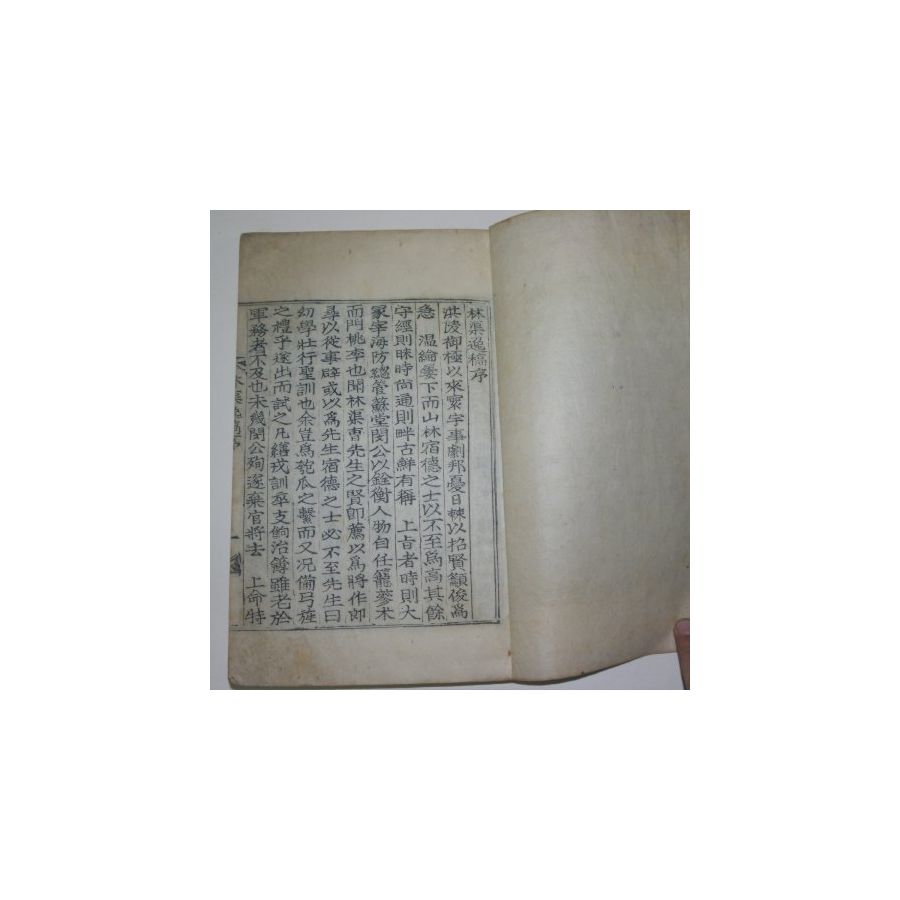 林渠逸稿序
洪陵御極以來寰宇事劇邦憂日棘以招賢籲俊爲
急 溫綸屢下而山林宿德之士以不至爲高其餘
守經則昧時尚通則畔古鮮有稱 上旨者時則大
冢宰海防總管蘇堂閔公以銓衡人物自任籠蔘朮
而門桃李也聞林渠曺先生之賢卽薦以爲將作郞
尋以從事辟或以爲先生宿德之士必不至先生曰
幼學壯行聖訓也余豈爲匏瓜之繫而又况備弓旌
之禮乎遂出而試之凡繕戎訓卒支餉治簿雖老於
軍務者不及也未幾閔公殉遂棄官將去 上命特
林渠逸稿序 一